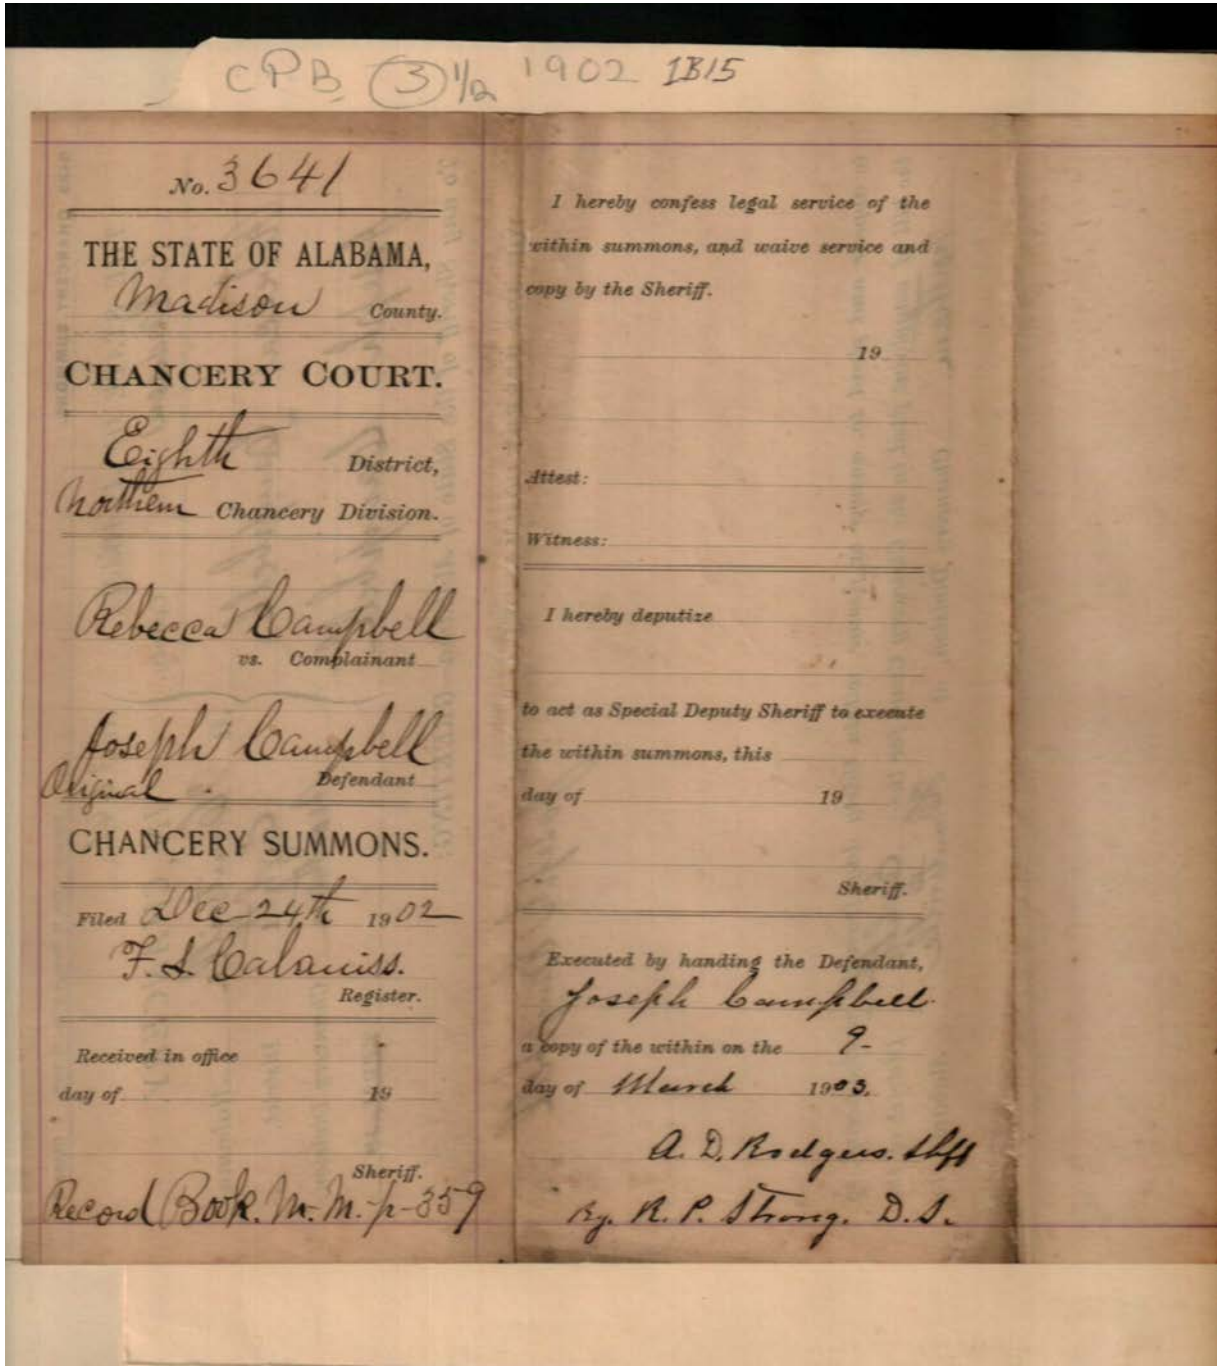 CPB (3) 1/2 1902 IB15
No. 3641
THE STATE OF ALABAMA,
Madison County.
CHANCERY COURT.
Eighth District,
Northern Chancery Division.
Rebecca Campbell
vs. Complainant
Joseph Campbell
Original. Defendant
CHANCERY SUMMONS.
Filed Dec 24th 1902
F. S. Cabaniss.
Register.
Received in office
day of 19
Sheriff.
Record Book. M. M. p-359
I hereby confess legal service of the
within summons, and waive service and
copy by the Sheriff.
19
Attest:
Witness:
I hereby deputize
to act as Special Deputy Sheriff to execute
the within summons, this
day of 19
Sheriff.
Executed by handing the Defendant,
Joseph Campbell.
a copy of the within on the 9-
day of March 1903.
A. D. Rodgers. Shff
By. R. P. Strong. D. S.